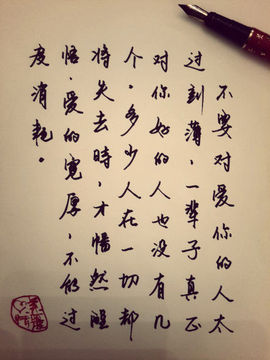 不要对爱你的人太
过刻薄，一辈子真正
对你好的人也没有几
个。多少人在一切都
将失去時，才幡然醒
悟，爱的宽厚，不能过
度消耗。